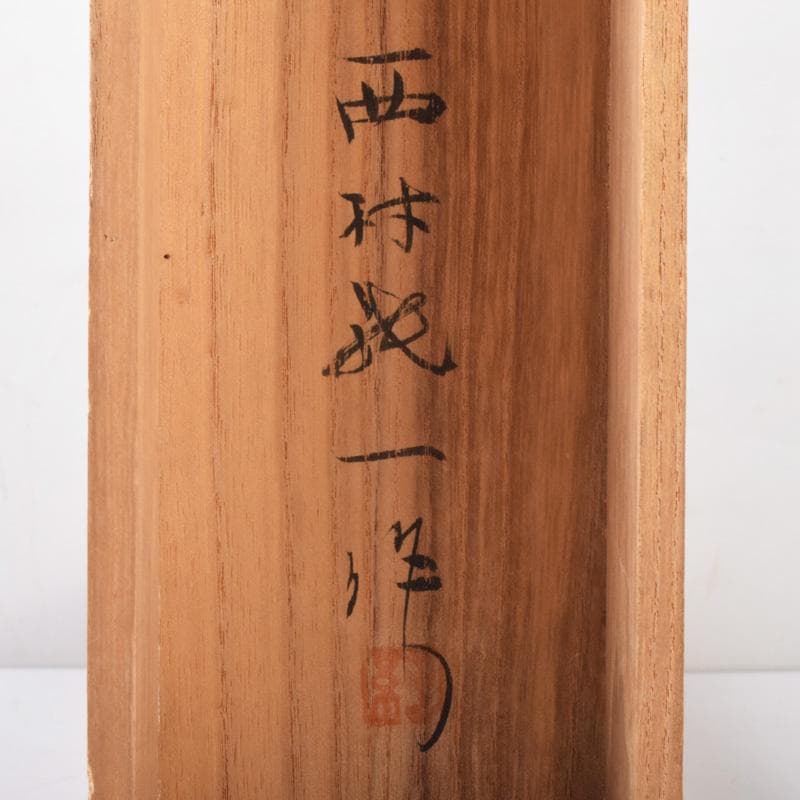 西村一作